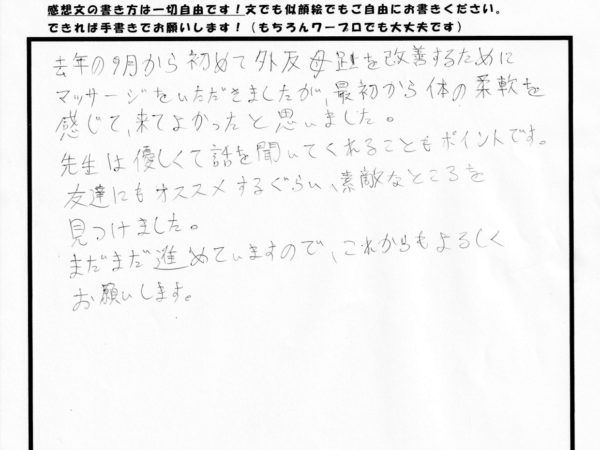 感想文の書き方は一切自由です！文でも似顔絵でもご自由にお書きください。
できれば手書きでお願いします！（もちろんワープロでも大丈夫です）
去年の9月から初めて外反母趾を改善するために
マッサージをいただきましたが、最初から体の柔軟を
感じて、来てよかったと思いました。
先生は優しくて話を聞いてくれることもポイントです。
友達にもオススメするぐらい、素敵なところを
見つけました。
まだまだ進めていますので、これからもよろしく
お願いします。